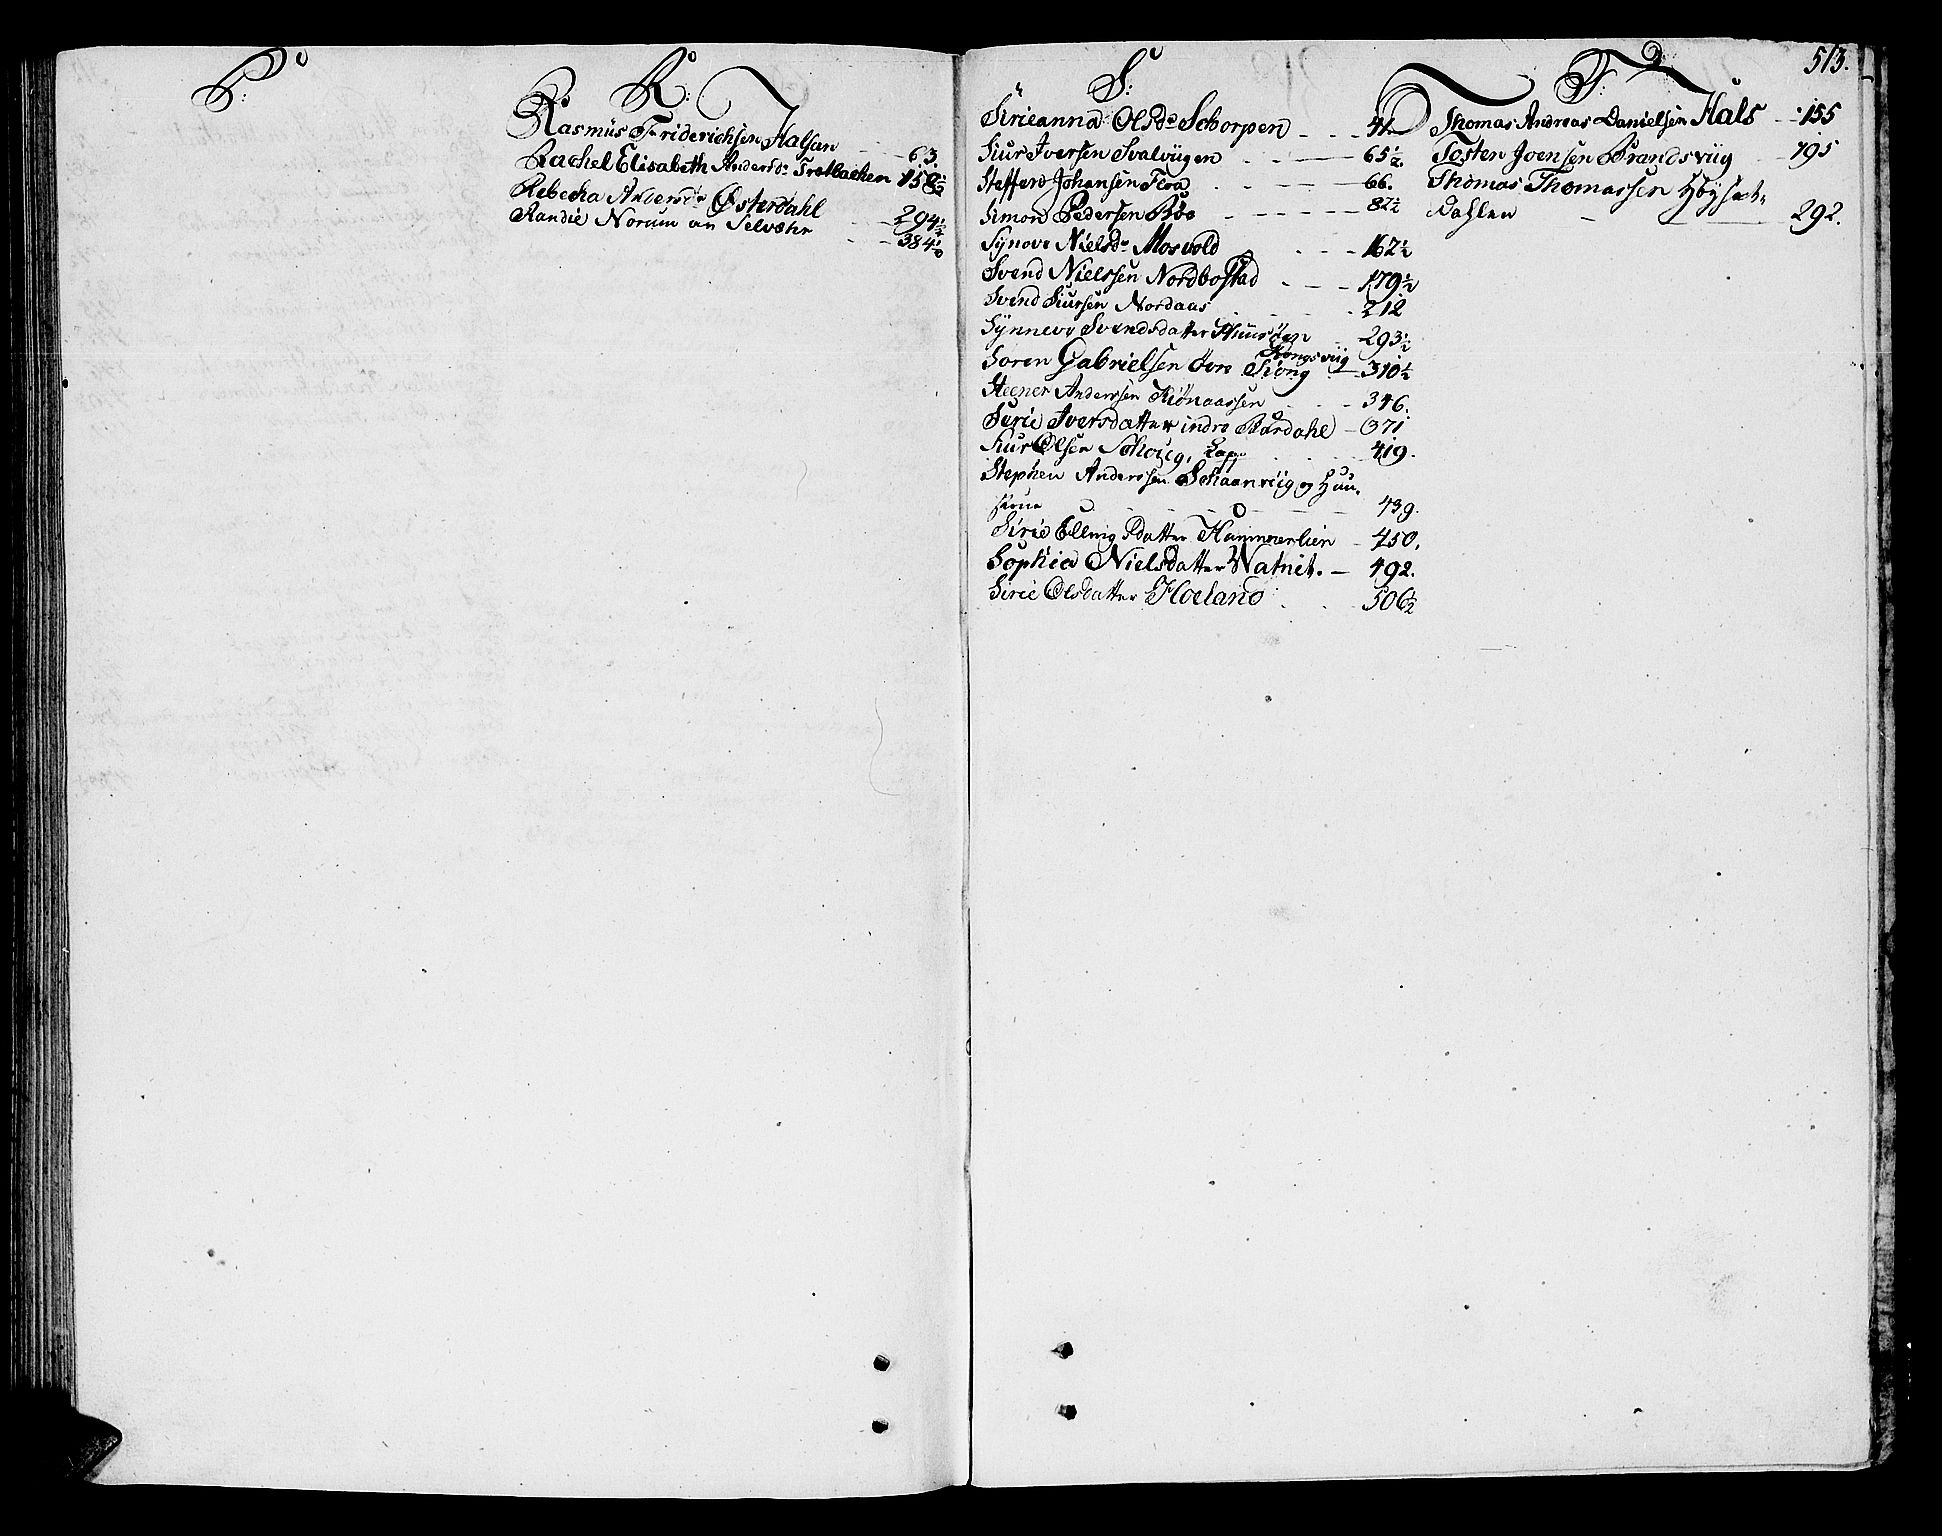 P:
R:
Rasmus Friderichsen Halsan 63.
Rachel Elisabeth Andersd: Trælbachen 158½
Rebecha Andersda Østerdahl 294½
Randie Norum an Selvøhr 384½
513.
S:
Sirieanna Olsda Schorpen 41.
Siur Iversen Svalviigen 65½.
Steffen Johansen Floa 66.
Simon Pedersen Bøe 82½
Synove Nielsda Mosvold 162½
Svend Nielssen Nordbostad 179½
Svend Siursen Nordaas 212
Synneve Svendsdatter 293½
Kongsviig
Soren Gabrielsen øvre Siong 310½
Steener Anderssen 346.
Serie Iversdatter indre Bardahl 371
Siur Olsen Schoug, Lap 419.
Stephen Anderssen Schaanviig og
439.
Sirie Ellingsdatter Hammerlien 450.
Sophia Nielsdatter Watnet. 492.
Sirie Olsdatter Hoeland 506½
T:
Thomas Andreas Danielsen Hals 155
Tosten Joensen Brandsviig 195
Thomas Thomassen
Dahlen 292.